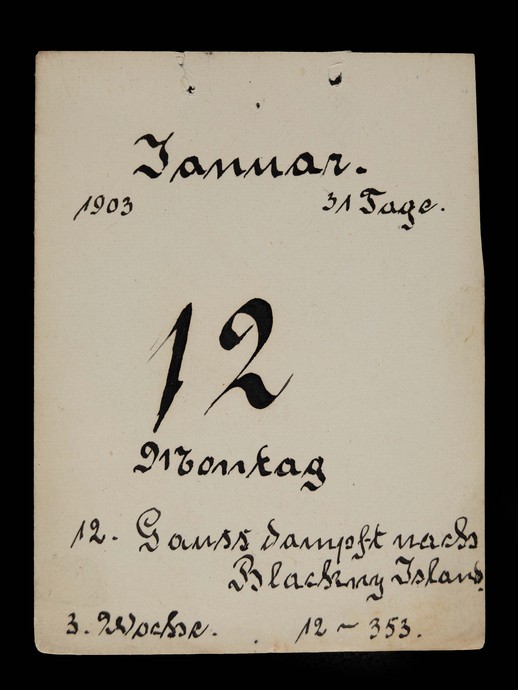 Januar.
1903 31 Tage.
12
Montag
12. Gauss dampft nach
Blackny Island.
3. Woche. 12 – 353.